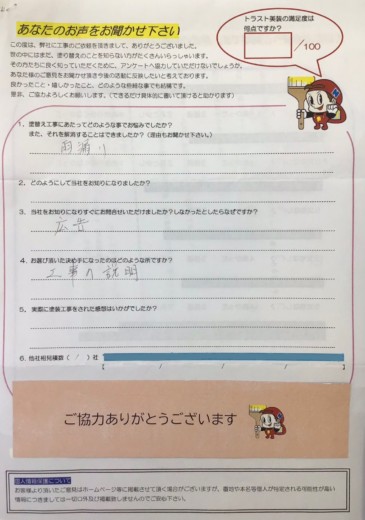 あなたのお声をお聞かせ下さい
トラスト美装の満足度は
何点ですか?
/100
この度は、弊社に工事のご依頼を頂きまして、ありがとうございました。
世の中にはまだ、塗り替えのことを知らない方がたくさんいらっしゃいます。
その方たちに良く知っていただくために、アンケートへ協力していただけないでしょうか。
あなた様のご意見をお聞かせ頂き今後の活動に反映したいと考えております。
良かったこと・嬉しかったこと。どのような些細な事でも結構です。
是非、ご協力よろしくお願いします。(できるだけ具体的に書いて頂けると助かります)
1. 塗替え工事にあたってどのような事でお悩みでしたか?
また、それを解消することはできましたか?(理由もお聞かせ下さい。)
雨漏り
2. どのようにして当社をお知りになりましたか?
3. 当社をお知りになりすぐにお問合せいただけましたか?しなかったとしたらなぜですか?
広告
4. お選び頂いた決め手になったのはどのような所ですか?
工事の説明
5. 実際に塗装工事をされた感想はいかがでしたか?
6. 他社相見積数( )社
ご協力ありがとうございます
個人情報保護について
お客様より頂いたご意見はホームページ等に掲載させて頂く場合がございますが、番地や本名等個人が特定される可能性が高い
情報につきましては一切口外及び掲載致しませんのでご安心下さい。